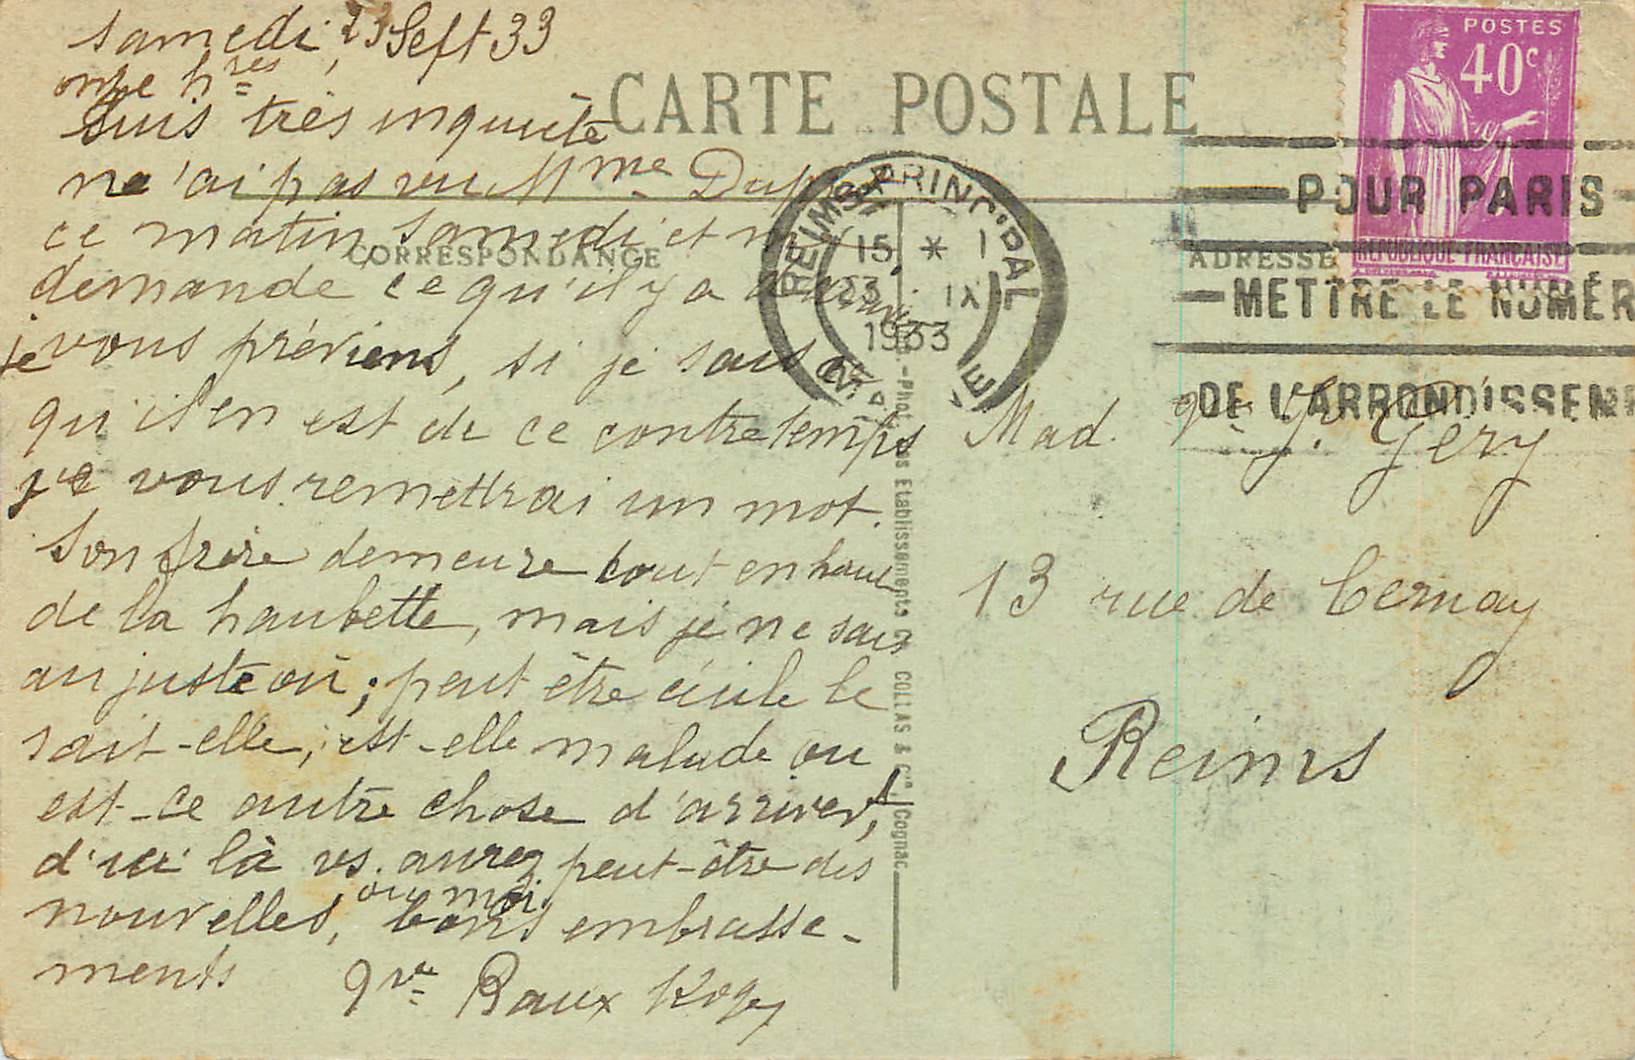 samedi, 23 Sept 33
onze hres
CARTE POSTALE
suis très inquiète
ne n'ai pas vu Mme
ce matin, samedi et
CORRESPONDANCE
demande ce qu'il y a
je vous préviens, si je sais
qu'il en est de ce contretemps
je vous remettrai un mot.
Son frère demeure tout en haut
de la haubette, mais je ne sais
au juste où ; peut être cécile le
sait-elle, est-elle malade ou
est-ce autre chose d'arriver,
d'ici là vs. aurez peut-être des
nouvelles, ou moi. bons embrasse-
ments gve Baux
Phot. Etablissements COLLAS & Cie, Cognac
POSTES
40c
REPUBLIQUE FRANÇAISE
REIMS PRINCIPAL
15 * 1
23 IX
1933
POUR PARIS
METTRE LE NUMÉR
DE L'ARRONDISSEM
ADRESSE
Mad. Géry
13 rue de Cernay
Reims